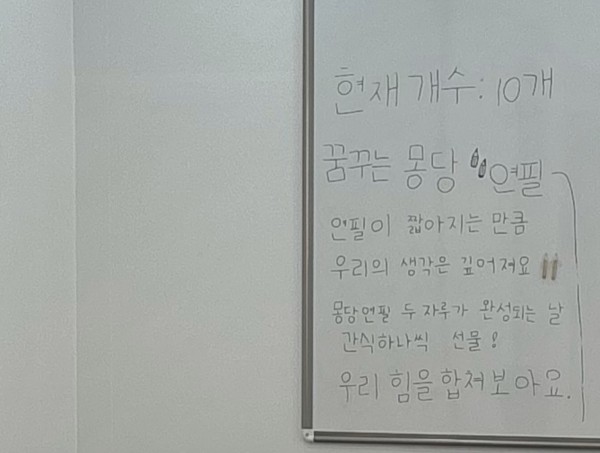 현재 개수: 10개
꿈꾸는 몽당 연필
연필이 짧아지는 만큼
우리의 생각은 깊어져요
몽당연필 두 자루가 완성되는 날
간식하나씩 선물!
우리 힘을 합쳐보아요.